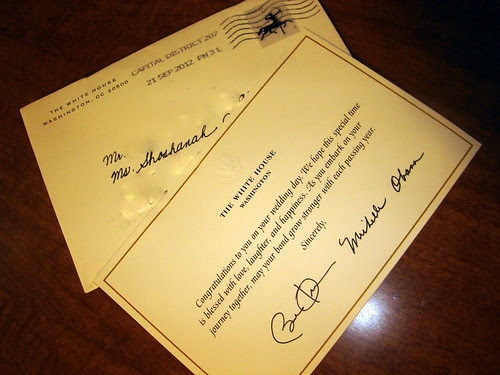 THE WHITE HOUSE
WASHINGTON, DC 20500
CAPITAL DISTRICT 207
21 SEP 2012 PM 3 L
Mr.
Ms. Shoshanah
THE WHITE HOUSE
WASHINGTON
Congratulations to you on your wedding day. We hope this special time
is blessed with love, laughter, and happiness. As you embark on your
journey together, may your bond grow stronger with each passing year.
Sincerely,
Michelle Obama